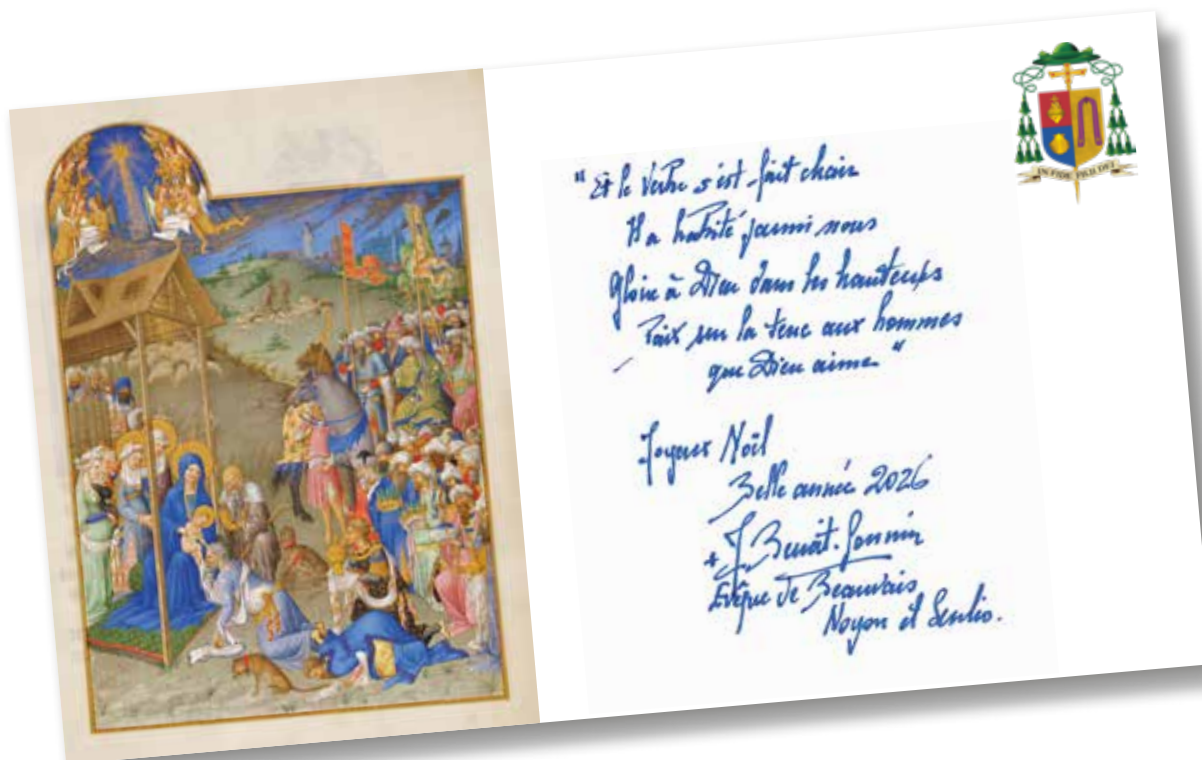 IN FIDE FILII DEI
" Et le Verbe s'est fait chair
Il a habité parmi nous
Gloire à Dieu dans les hauteurs
Paix sur la terre aux hommes
que Dieu aime "
Joyeux Noël
Belle année 2026
+ J. Benoît-Gonnin
Evêque de Beauvais,
Noyon et Senlis.